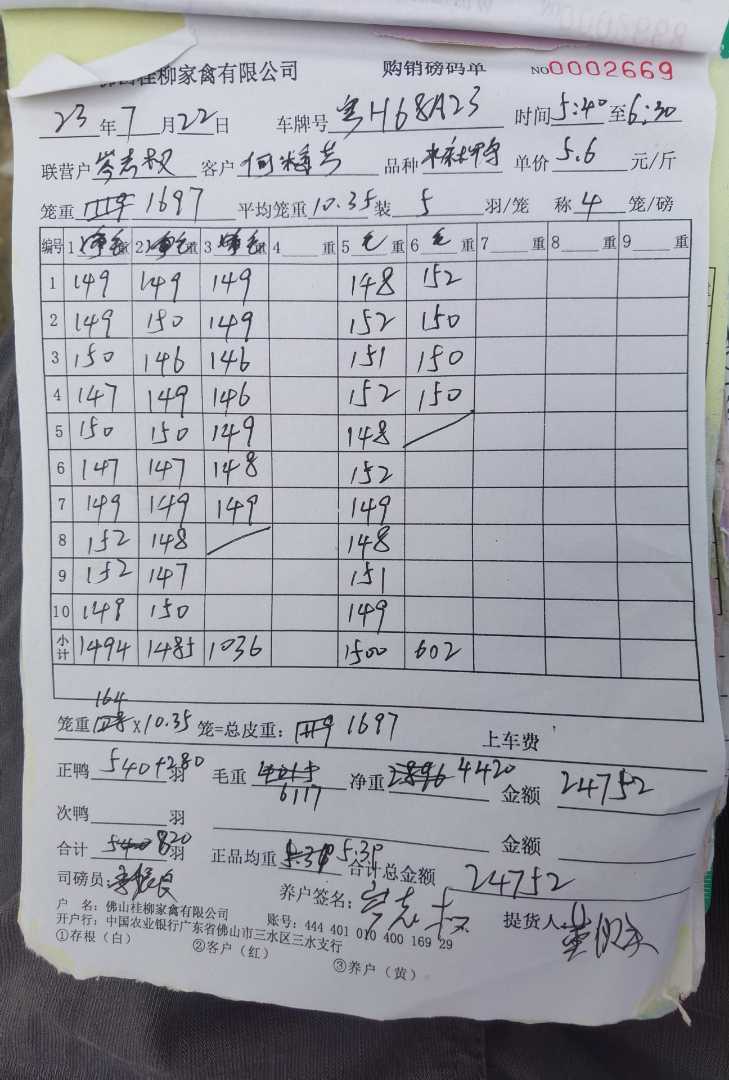 佛山桂柳家禽有限公司 购销磅码单 NO0002669
23年7月22日 车牌号粤H68A23 时间5:40至6:30
联营户 客户 品种 单价5.6元/斤
笼重1697 平均笼重10.35装5羽/笼 称4笼/磅
编号 1毛重 2毛重 3毛重 4重 5毛重 6毛重 7重 8重 9重
1 149 149 149 148 152
2 149 150 149 152 150
3 150 146 146 151 150
4 147 149 146 152 150
5 150 150 149 148
6 147 147 148 152
7 149 149 149 149
8 152 148 148
9 152 147 151
10 149 150 149
小计 1494 1485 1036 1500 602
笼重164X10.35笼=总皮重:1697 上车费
正鸭540+280羽 毛重6117 净重4420 金额24752
次鸭羽 金额
合计820羽 正品均重5.39 合计总金额24752
司磅员: 养户签名: 提货人
户 名:佛山桂柳家禽有限公司 账号:444 401 010 400 169 29
开户行:中国农业银行广东省佛山市三水区三水支行
①存根(白) ②客户(红) ③养户(黄)